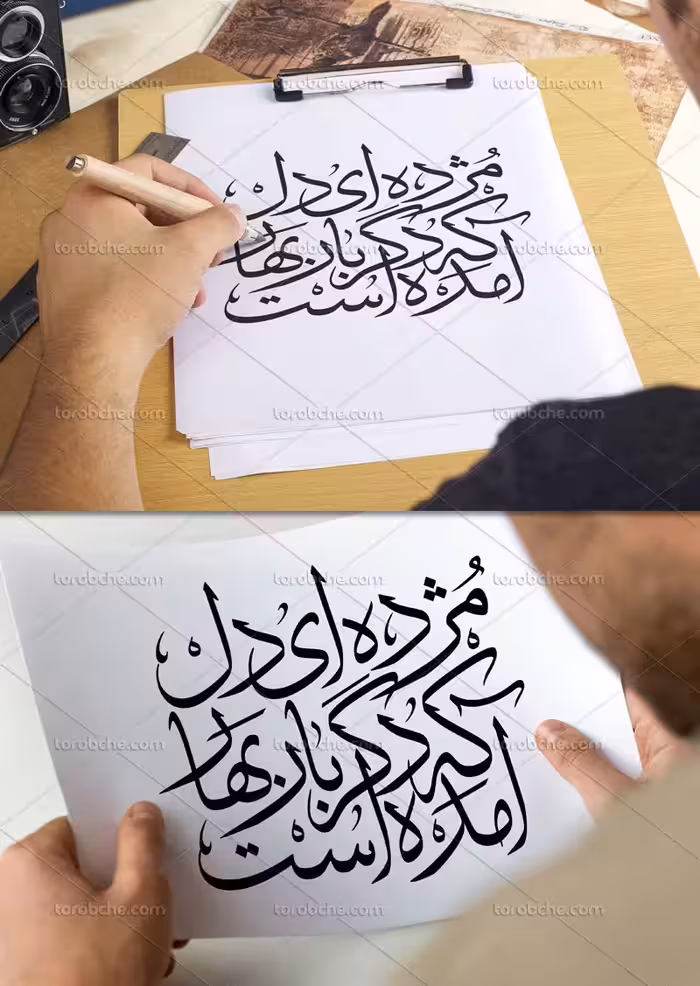 torobche.com torobche.com torobche.com
مُژده ای دل
torobche.com torobche.com torobche.com
که دگر بار بهار
امده است
torobche.com torobche.com torobche.com
torobche.com torobche.com torobche.com
مُژده ای دل
torobche.com torobche.com torobche.com
که دگر بار بهار
امده است
torobche.com torobche.com torobche.com